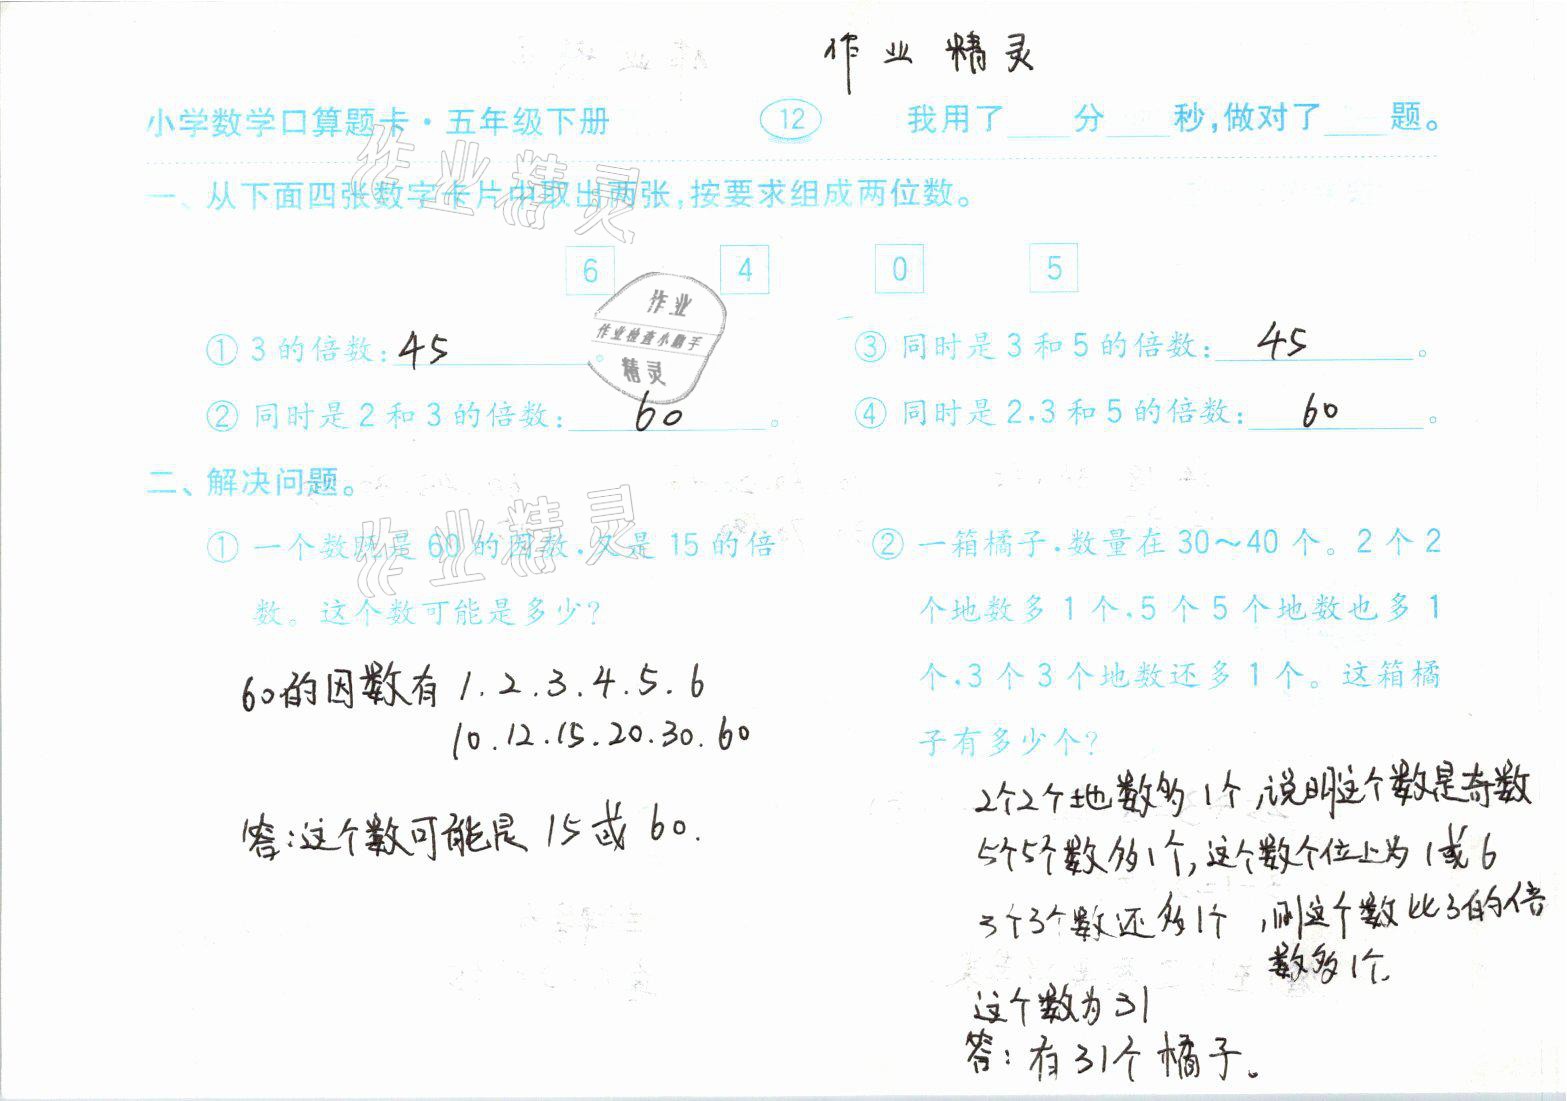 作业精灵
小学数学口算题卡·五年级下册 12 我用了____分____秒,做对了____题。
一、从下面四张数字卡片中取出两张,按要求组成两位数。
6 4 0 5
① 3的倍数:45。
③ 同时是3和5的倍数:45。
② 同时是2和3的倍数:60。
④ 同时是2.3和5的倍数:60。
作业
作业检查小助手
精灵
作业精灵
二、解决问题。
① 一个数既是60的因数,又是15的倍
数。这个数可能是多少?
作业精灵
60的因数有 1.2.3.4.5.6
10.12.15.20.30.60
答:这个数可能是15或60.
② 一箱橘子,数量在30~40个。2个2
个地数多1个,5个5个地数也多1
个,3个3个地数还多1个。这箱橘
子有多少个?
2个2个地数多1个,说明这个数是奇数
5个5个数多1个,这个数个位上为1或6
3个3个数还多1个,则这个数比3的倍
数多1个.
这个数为31
答:有31个橘子。